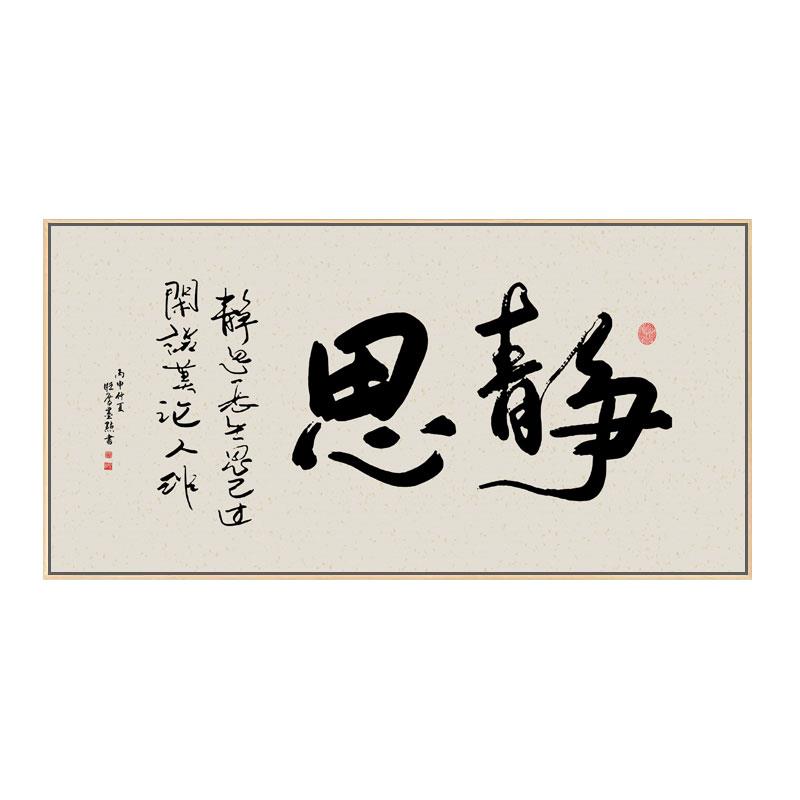 静思
静思思己过
閑談莫论人非
丙申仲夏
墨書